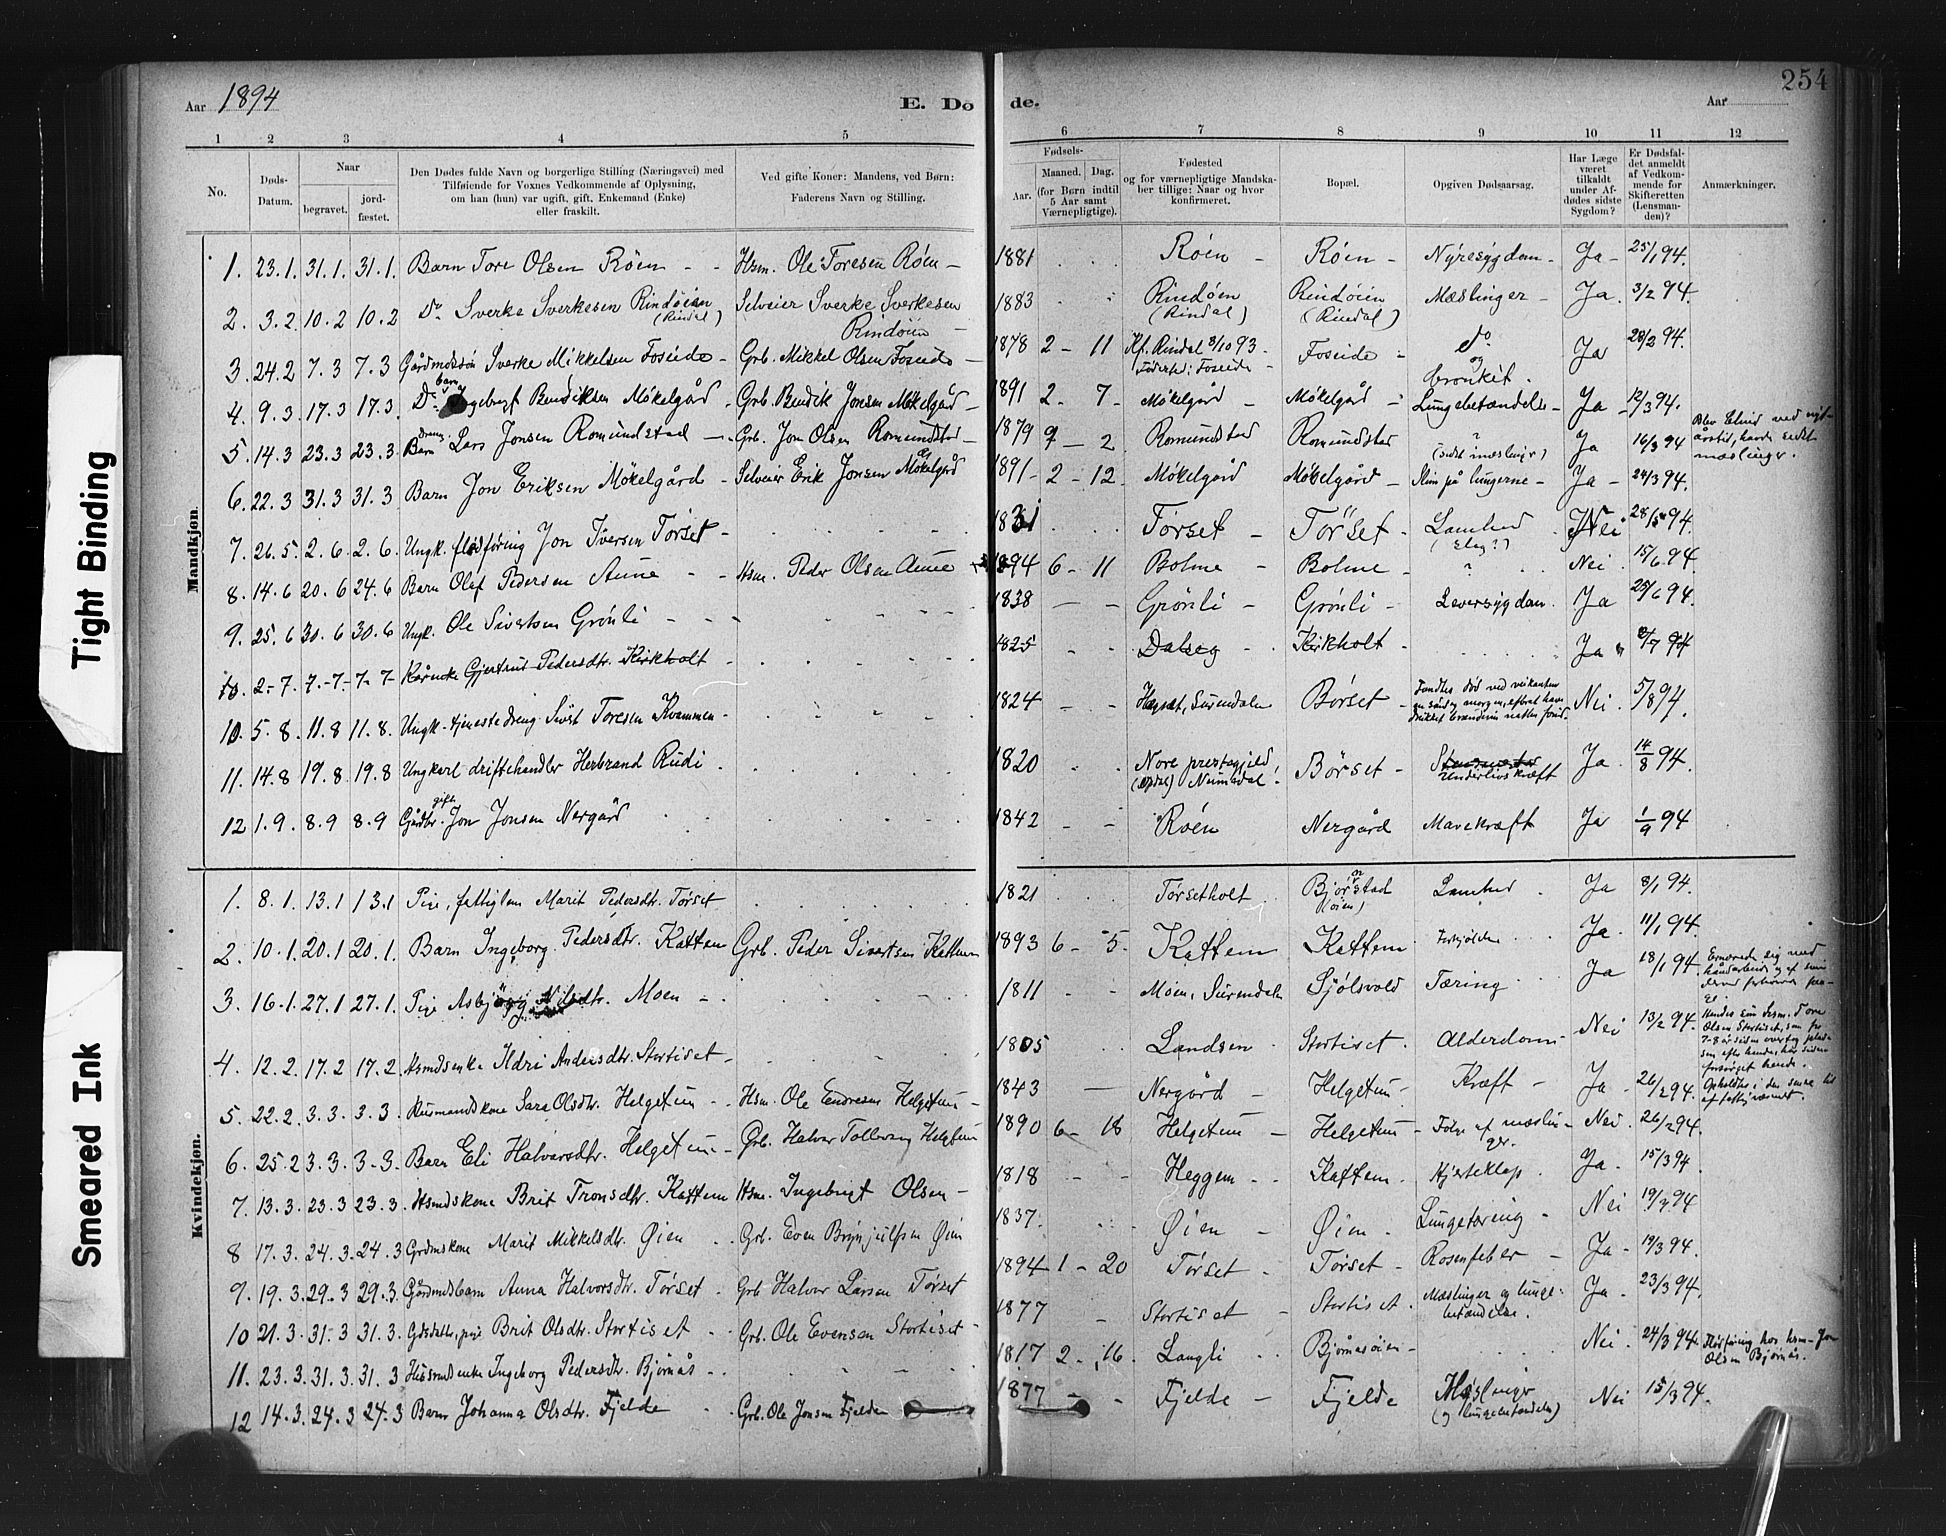 254
Aar 1894 E. Dø de. Aar
1 2 3 4 5 6 7 8 9 10 11 12
No. Døds-Datum. Naar begravet. jord-fæstet. Den Dødes fulde Navn og borgerlige Stilling (Næringsvei) med Tilføiende for Voxnes Vedkommende af Oplysning, om han (hun) var ugift, gift, Enkemand (Enke) eller fraskilt. Ved gifte Koner: Mandens, ved Børn: Faderens Navn og Stilling. Fødsels- Aar. Maaned. Dag. (for Børn indtil 5 Aar samt Værnepligtige). Fødested og for værnepligtige Mandskaber tillige: Naar og hvor konfirmeret. Bopæl. Opgiven Dødsaarsag. Har Læge været tilkaldt under Afdødes sidste Sygdom? Er Dødsfaldet anmeldt af Vedkommende for Skifteretten (Lensmanden)? Anmærkninger.
Mandkjøn.
1. 23.1. 31.1. 31.1. Barn Tore Olsen Röen - - Hsm. Ole Toresen Röen - 1881 Röen - Röen - Nyresygdom - Ja - 25/1 94.
2. 3.2 10.2 10.2 Do Sverke Sverkesen Rindöien (Rindal) Selveier Sverke Sverkesen Rindöien - 1883 Rindöen (Rindal) Rindöien (Rindal) Mæslinger - Ja. 3/2 94.
3. 24.2 7.3 7.3 Gårdmdssön Sverke Mikkelsen Foseide - Grb. Mikkel Olsen Foseide - 1878 2 - 11 Kf. Rindal 8/10 93 - Födested: Foseide - Foseide - do og bronkit. Ja 28/2 94.
4. 9.3. 17.3 17.3. Do barn Ingebrigt Bendiksen Mökelgård. Grb. Bendik Jonsen Mökelgård - 1891 2 - 7. Mökelgård - Mökelgård - Lungebetændelse - Ja - 12/3 94.
5. 14.3 23.3 23.3. Barn Lars Jonsen Romundstad - Grb. Jon Olsen Romundstad - 1879 9 - 2 Romundstad Romundstad ? (sidst mæslinger) Ja 16/3 94 Blev Elend ved nyt-årstid, havde sidst mæslinger.
6. 22.3 31.3 31.3. Barn Jon Eriksen Mökelgård - Selveier Erik Jonsen Mökelgård 1891 - 2 - 12. Mökelgård Mökelgård - Slim på lungerne - Ja - 24/3 94.
7. 26.5. 2.6. 2.6. Ungk. flodföring Jon Iversen Törset - 1831 Törset - Törset - Lamhed (Slag?) Nei 28/5 94.
8. 14.6 20.6 24.6 Barn Olef Pedersen Aune - - Hsm. Peder Olsen Aune 1894 6 - 11 Bolme - Bolme - ? Nei 15/6 94.
9. 25.6 30.6 30.6 Ungk. Ole Sivertsen Grönli - - - 1838 - - Grönli - Grönli - Leversygdom. Ja 25/6 94.
10. 2.-7. 7.-7. 7-7- Kårenke Gjertrud Pedersdtr. Kirkholt - 1825 - - Dalseg - Kirkholt - Ja /7 94
10. 5.8. 11.8 11.8. Ungk. tjenestedreng Sivert Toresen Kvammen - 1824 - Hagsæt, Surendalen Börset - Fandtes död ved veikanten en söndag morgen, efterat have drukket brændevin natten forud. Nei. 5/8 94.
11. 14.8 19.8 19.8 Ungkarl driftehandler Herbrand Rudi. 1820 Nore prestegjeld, (Opdal) Numedal. Börset - Underlivskræft Ja. 14/8 94.
12 1.9. 8.9 8.9 Gårdbr. gift Jon Jonsen Nergård 1842 - - Röen Nergård Mavekræft Ja 1/9 94
Kvindekjøn.
1. 8.1. 13.1 13.1 Pige, fattiglem Marit Pedersdtr. Törset 1821 Törsetholt Bjørnstad (öien) Lamhed. Ja 8/1 94.
2. 10.1. 20.1 20.1. Barn Ingeborg Pedersdtr. Kattem Grb. Peder Sivertsen Kattem 1893 6 - 5. Kattem Kattem. Forkjölelse Ja. 11/1 94.
3. 16.1. 27.1 27.1. Pige Asbjörg Nilsdtr. Moen - - 1811 - - Moen, Surendalen Sjölsvold Tæring. Ja 18/1 94 Ernærede sig med håndarbeide
4. 12.2. 17.2 17.2. Hsmdsenke Ildri Andersdtr. Stortiset - 1805 Landsen Stortiset. Alderdom - Nei 13/2 94. Hendes sön hsm. Tore Olsen Stortiset, som for 7-8 år siden overtog pladsen efter hende, har siden forsörget hende.
5. 22.2. 3.3. 3.3. Husmandskone Sara Olsdtr. Helgetun - - Hsm. Ole Endresen Helgetun - 1843 - Nergård - Helgetun - Kræft - Ja - 26/2 94. Opholdtes i den senere tid af fattigvæsenet.
6. 25.2 3.3. 3-3. Barn Eli Halvorsdtr. Helgetun - Grb. Halvor Tollevsen Helgetun 1890 6 - 18 Helgetun - Helgetun - Fölge af mæslinger. Nei. 26/2 94.
7. 13.3. 23.3 23.3. Hsmdskone Brit Tronsdtr. Kattem Hsm. Ingebrigt Olsen - 1818 - - Heggem - - Kattem. Hjerteklap. Ja. 15/3 94
8 17.3. 24.3. 24.3 Grdmskone Marit Mikkelsdtr. Øien - - Grb. Even Brynjulfsen Øien 1837. Øien - Øien - Lungetæring - Nei 19/3 94
9. 19.3. 29.3 29.3. Gårdmdsbarn Anna Halvorsdtr. Törset - Grb Halvor Larsen Törset 1894 1 - 20 Törset - Törset - Rosenfeber - Ja - 19/3 94.
10 21.3. 31.3 31.3. Gdsdatter, pige Brit Olsdtr. Stortiset - - Grb. Ole Evensen Stortiset - 1877 - Stortiset - Stortiset. Mæslinger og lungebetændelse. Ja. 23/3 94.
11. 23.3. 31.3. 31.3 Husmdsenke Ingeborg Pedersdtr. Bjørnås - - 1817 2 - 16. Langli Bjørnåsöien - Nei. 24/3 94. Flodföring hos hsm. Jon Olsen Bjørnås.
12 14.3. 24.3 24.3 Barn Johanna Olsdtr. Fjelde - Grb. Ole Jonsen Fjelde 1877 - - Fjelde - Fjelde Mæslinger (og lungebetændelse) Nei 15/3 94.
Tight Binding
Smeared Ink